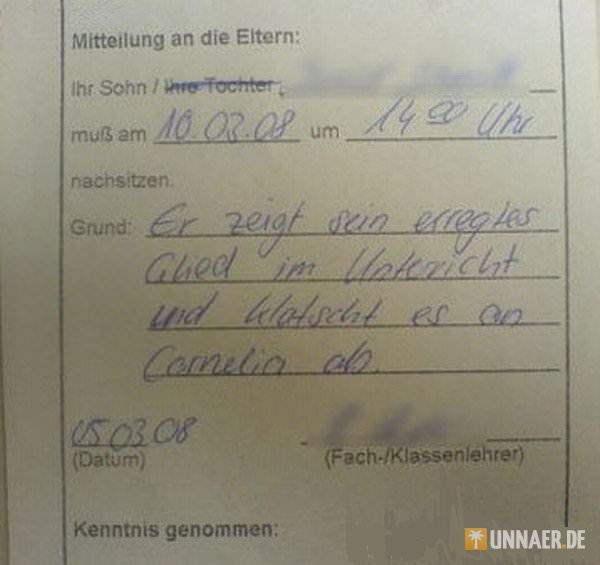 Mitteilung an die Eltern:
Ihr Sohn / Ihre Tochter,
muß am 10.03.08 um 14 00 Uhr
nachsitzen.
Grund: Er zeigt sein erregtes
Glied im Untericht
und klatscht es an
Cornelia ab.
05.03.08
(Datum) (Fach-/Klassenlehrer)
Kenntnis genommen:
UNNAER.DE